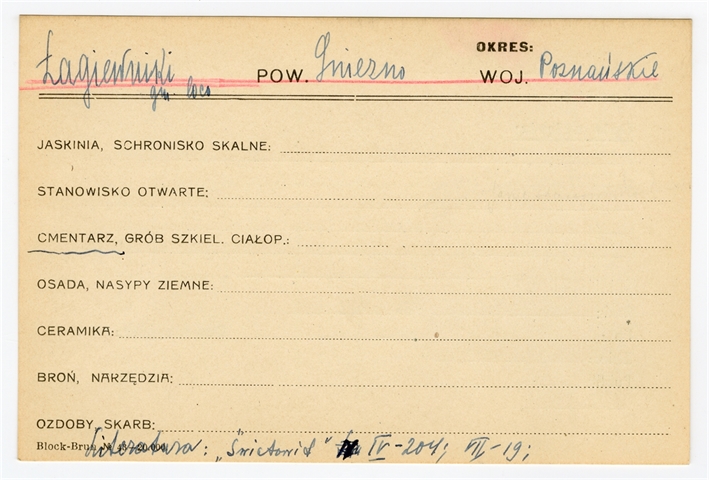 OKRES:
Łagiewniki POW. Gniezno WOJ. Poznańskie
gm. loco
JASKINIA, SCHRONISKO SKALNE:
STANOWISKO OTWARTE:
CMENTARZ, GRÓB SZKIEL. CIAŁOP.:
OSADA, NASYPY ZIEMNE:
CERAMIKA:
BROŃ, NARZĘDZIA:
OZDOBY, SKARB:
Literatura: "Światowit" IV-204; VII-19;
Block-Brun